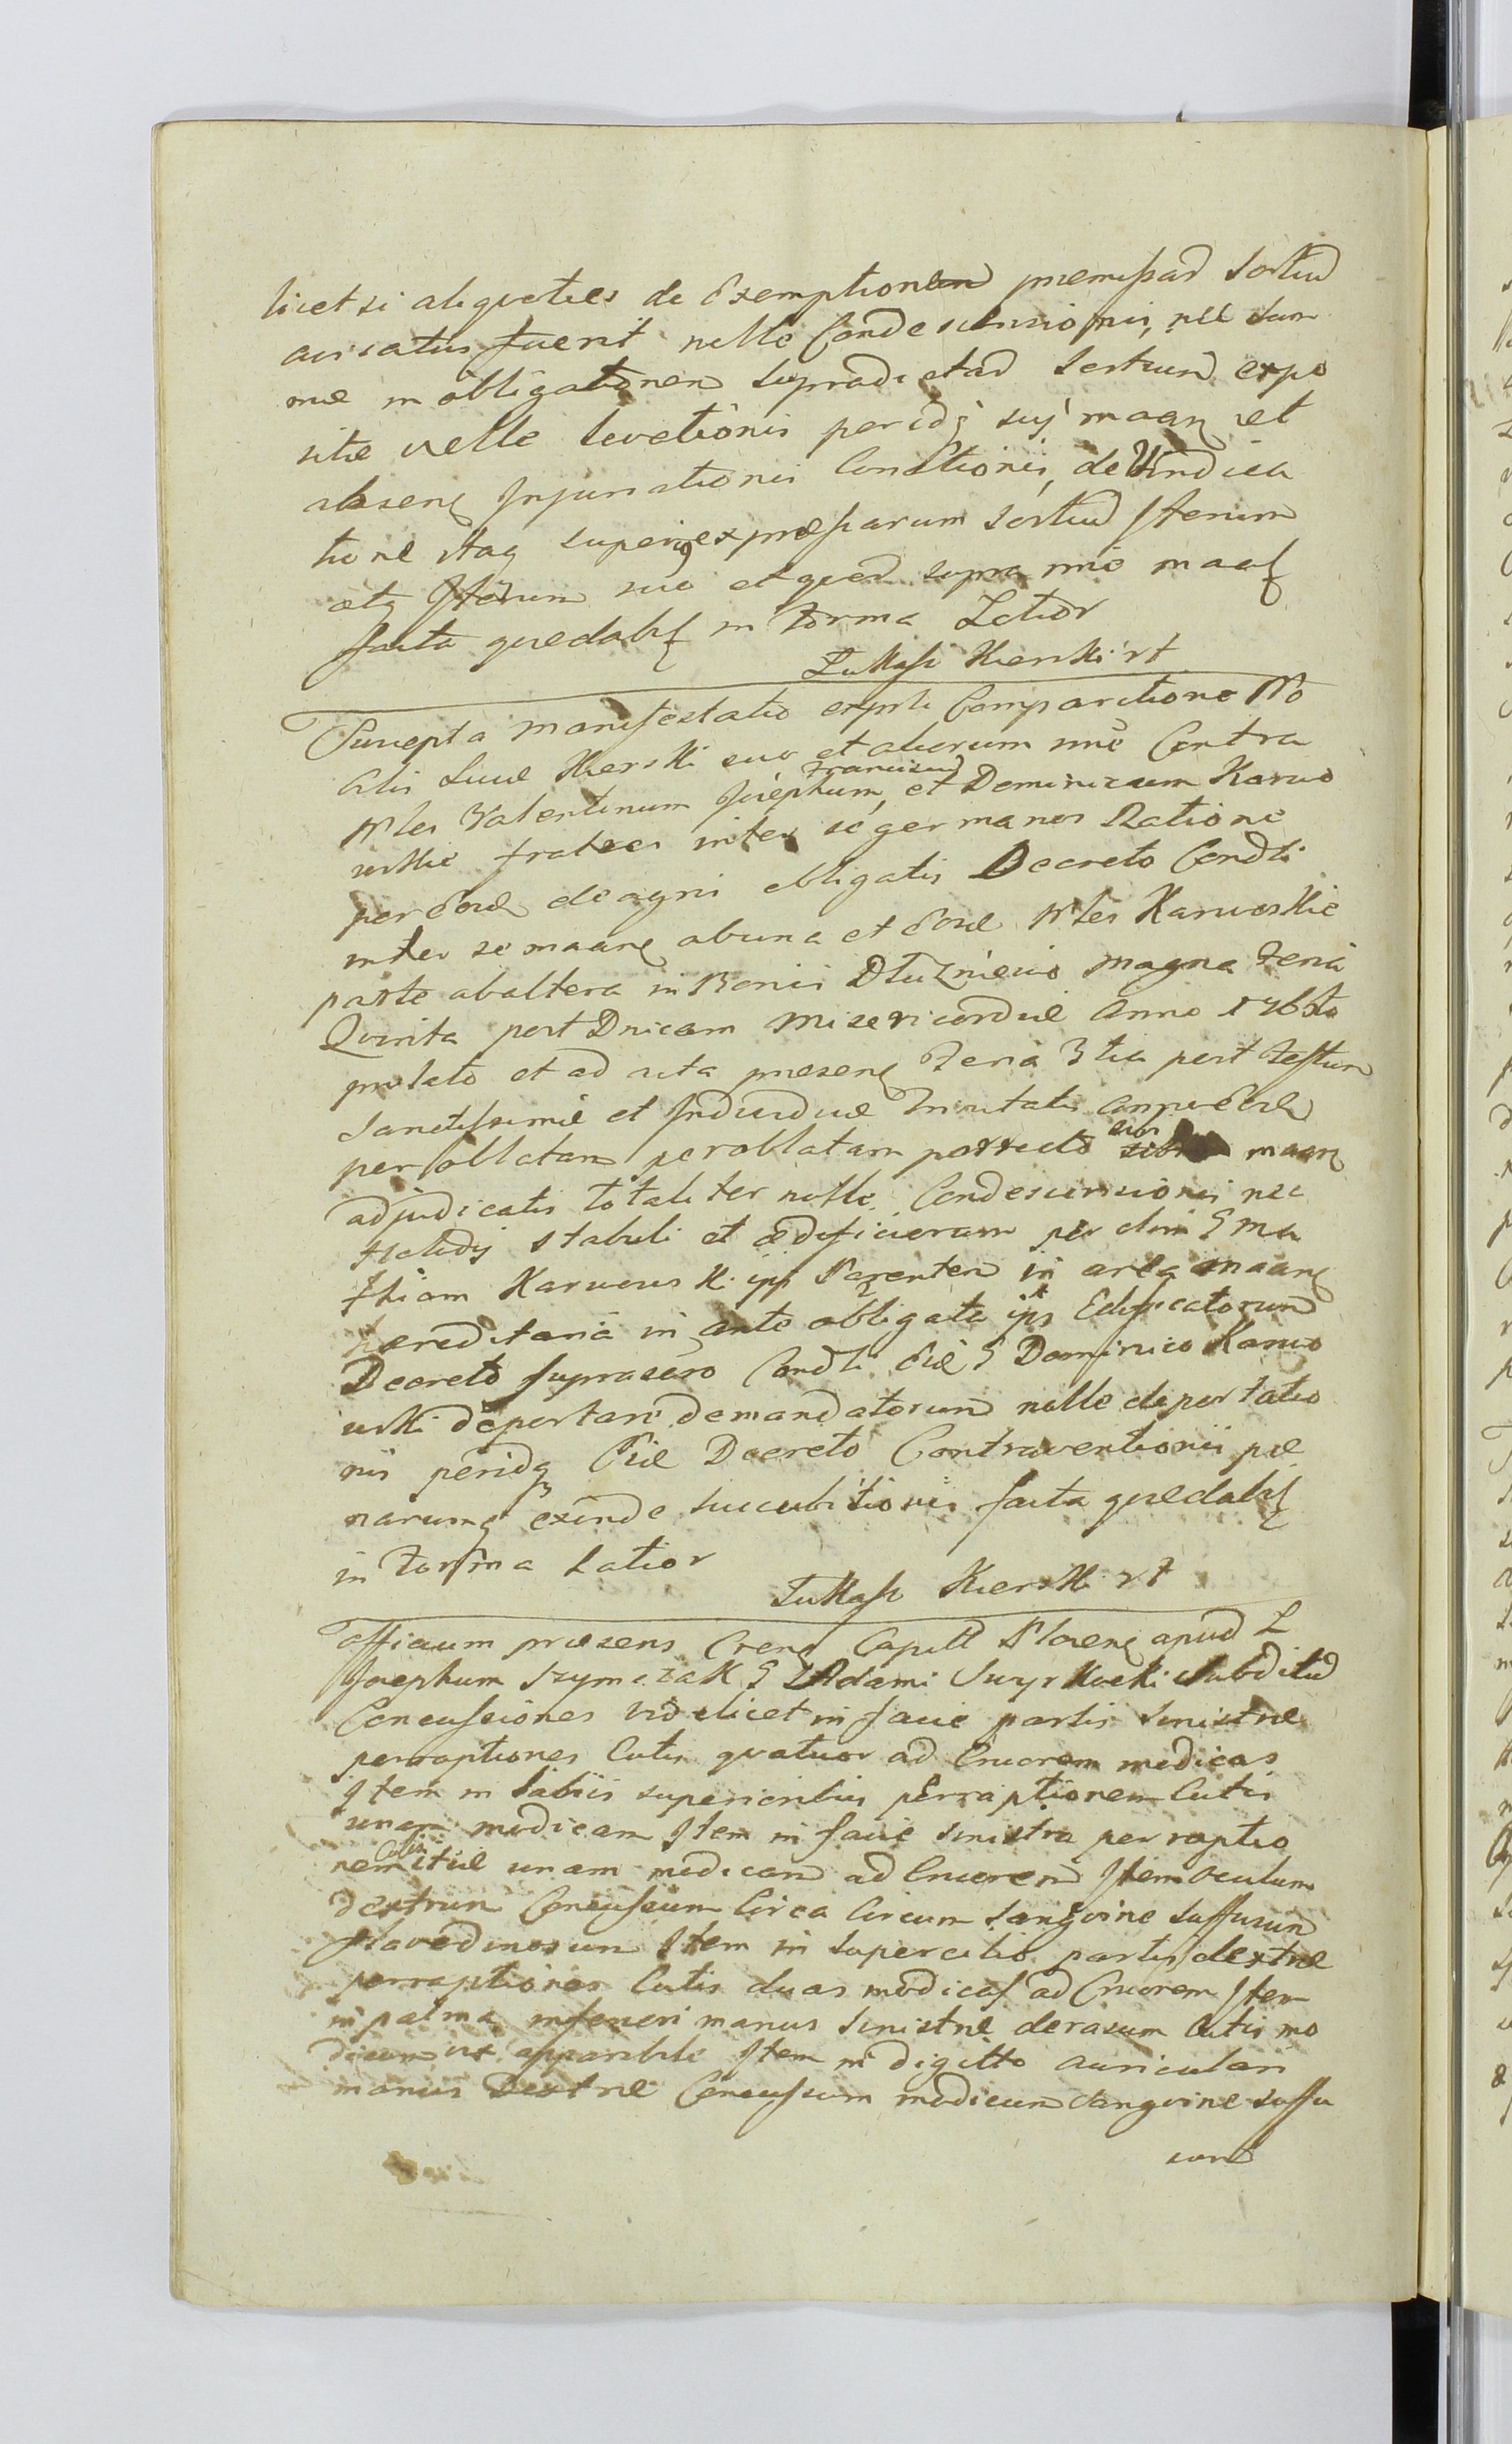 licet si aliqveties de Exemptionem præmissar Sortiu
avisatus fuerit nullo Condescensionis, nec Sum
mæ in obligationem Supradictar Sortium expo
sitæ velle levationis
absenq Injurationis Conditionis, de Vindica
tione itaq superius expressarum Sortiu Iterum
atq Iterum suo et qvor supra nnie maaf
facta qvedabf in Forma Latior
Łukasz Kierski rt
Suscepta Manifestatio exprte Comparitione No
Alis Lucæ Kierski suo et aliorum nnie Contra
Nles Valentinum Josephum, Franciscu et Dominicum Karwo
wskie fratres inter se germanos Ratione
per Eosd de agris obligatis Decreto Condli
inter se maang abuna et Eosd Nles Karwoskie
parte abaltera in Bonis Dłuzniewo Magna Feria
Qvinta post Dnicam Misericordiæ Anno 176
prolato et ad acta præsenq Feria 3tia post Festum
Sanctissimæ et Individuæ Trinitatis
per oblatam per oblatam porrecto sibi maanq
adjudicatis totaliter nolle Condescensionis nec
stabuli et ædificiorum per olim G Ma
thiam Karwows K. ipp Parentem in area maanq
hereditaria in ante obligata ips Edificatorum
Decreto suprascro Condli Eid G Dominico Karwo
wski deportari demandatorum nolle deportatio
nis peridq Eid Decreto Contraventionis pæ
narumq exinde succubitionis facta qvedabf
in Forma Latior
Łukasz Kierski rt
Officium præsens Crenq Capitl Płocenq apud L
Josephum Szymczak G Adami Swyrkocki Subditu
Concussiones videlicet in facie partis Sinistræ
perraptiones Cutis qvatuor ad Cruorem modicas
Item in labiis superioribus perraptionem Cutis
unam modicam Item in facie sinistra perraptio
nem Cutis unam modicam ad Cruorem Item oculum
dextrum Concussum Circa Circum Sangvine Suffusum
flavedinosum Item in Supercilio partis dextræ
perraptiones Cutis duas modicas ad Cruorem Item
in palma inferiori manus Sinistræ derasum Cutis mo
dicum vix apparibile Item in digitto auriculari
manus Dextræ Concussum modicum Sangvine Suffu
sum